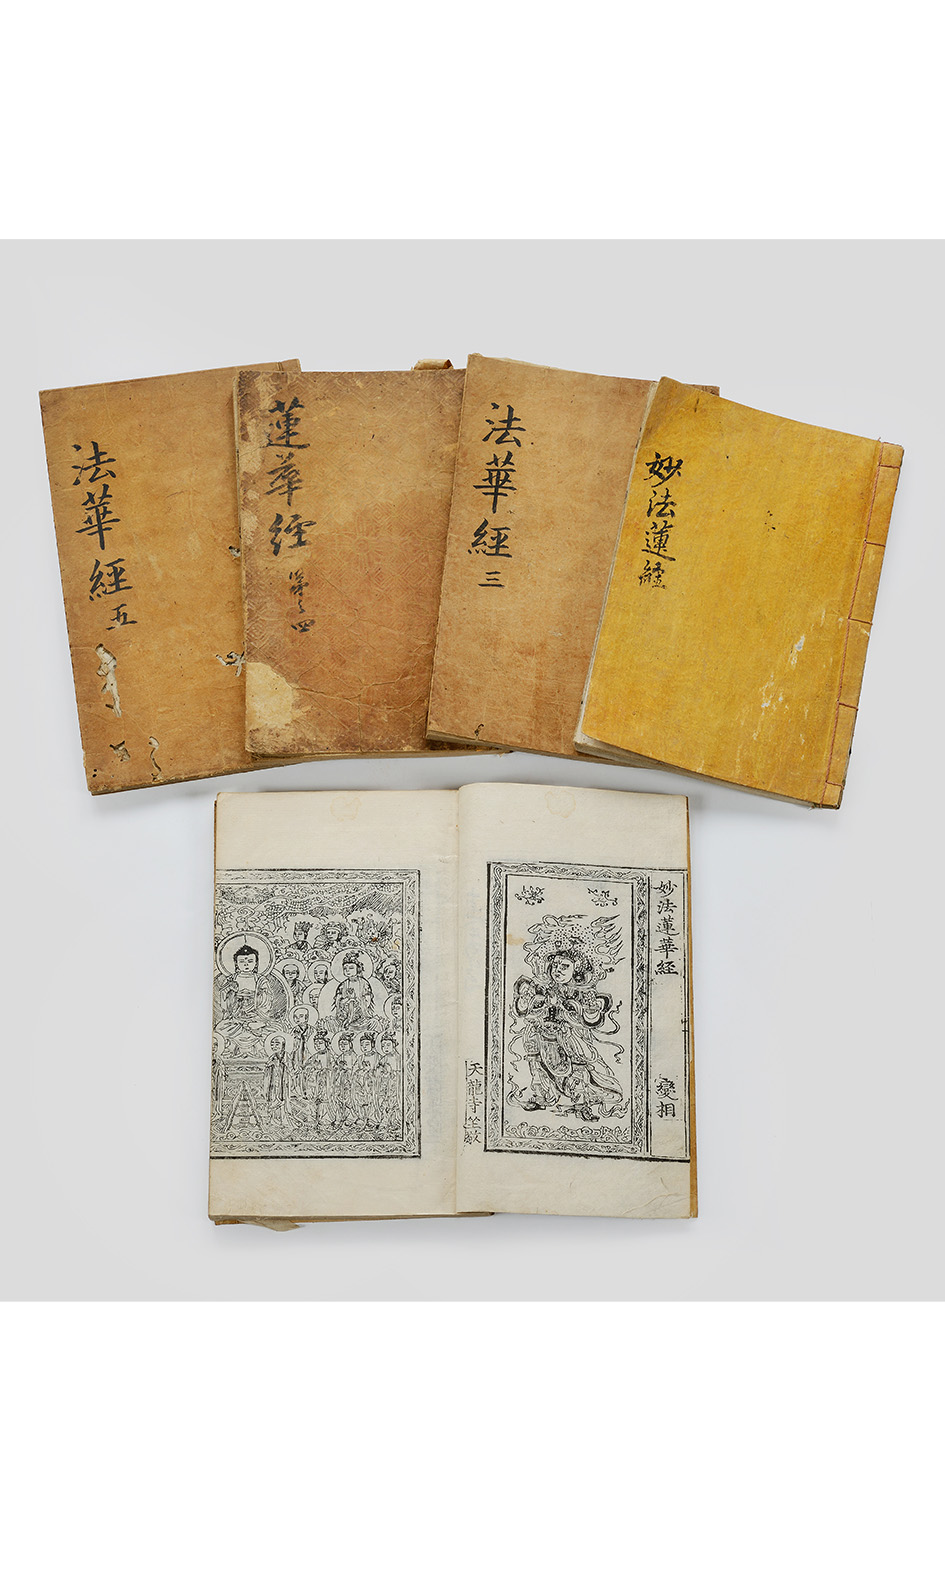 法華經五
蓮華經第之四
法華經三
妙法蓮經
妙法蓮華経 變相
天龍寺